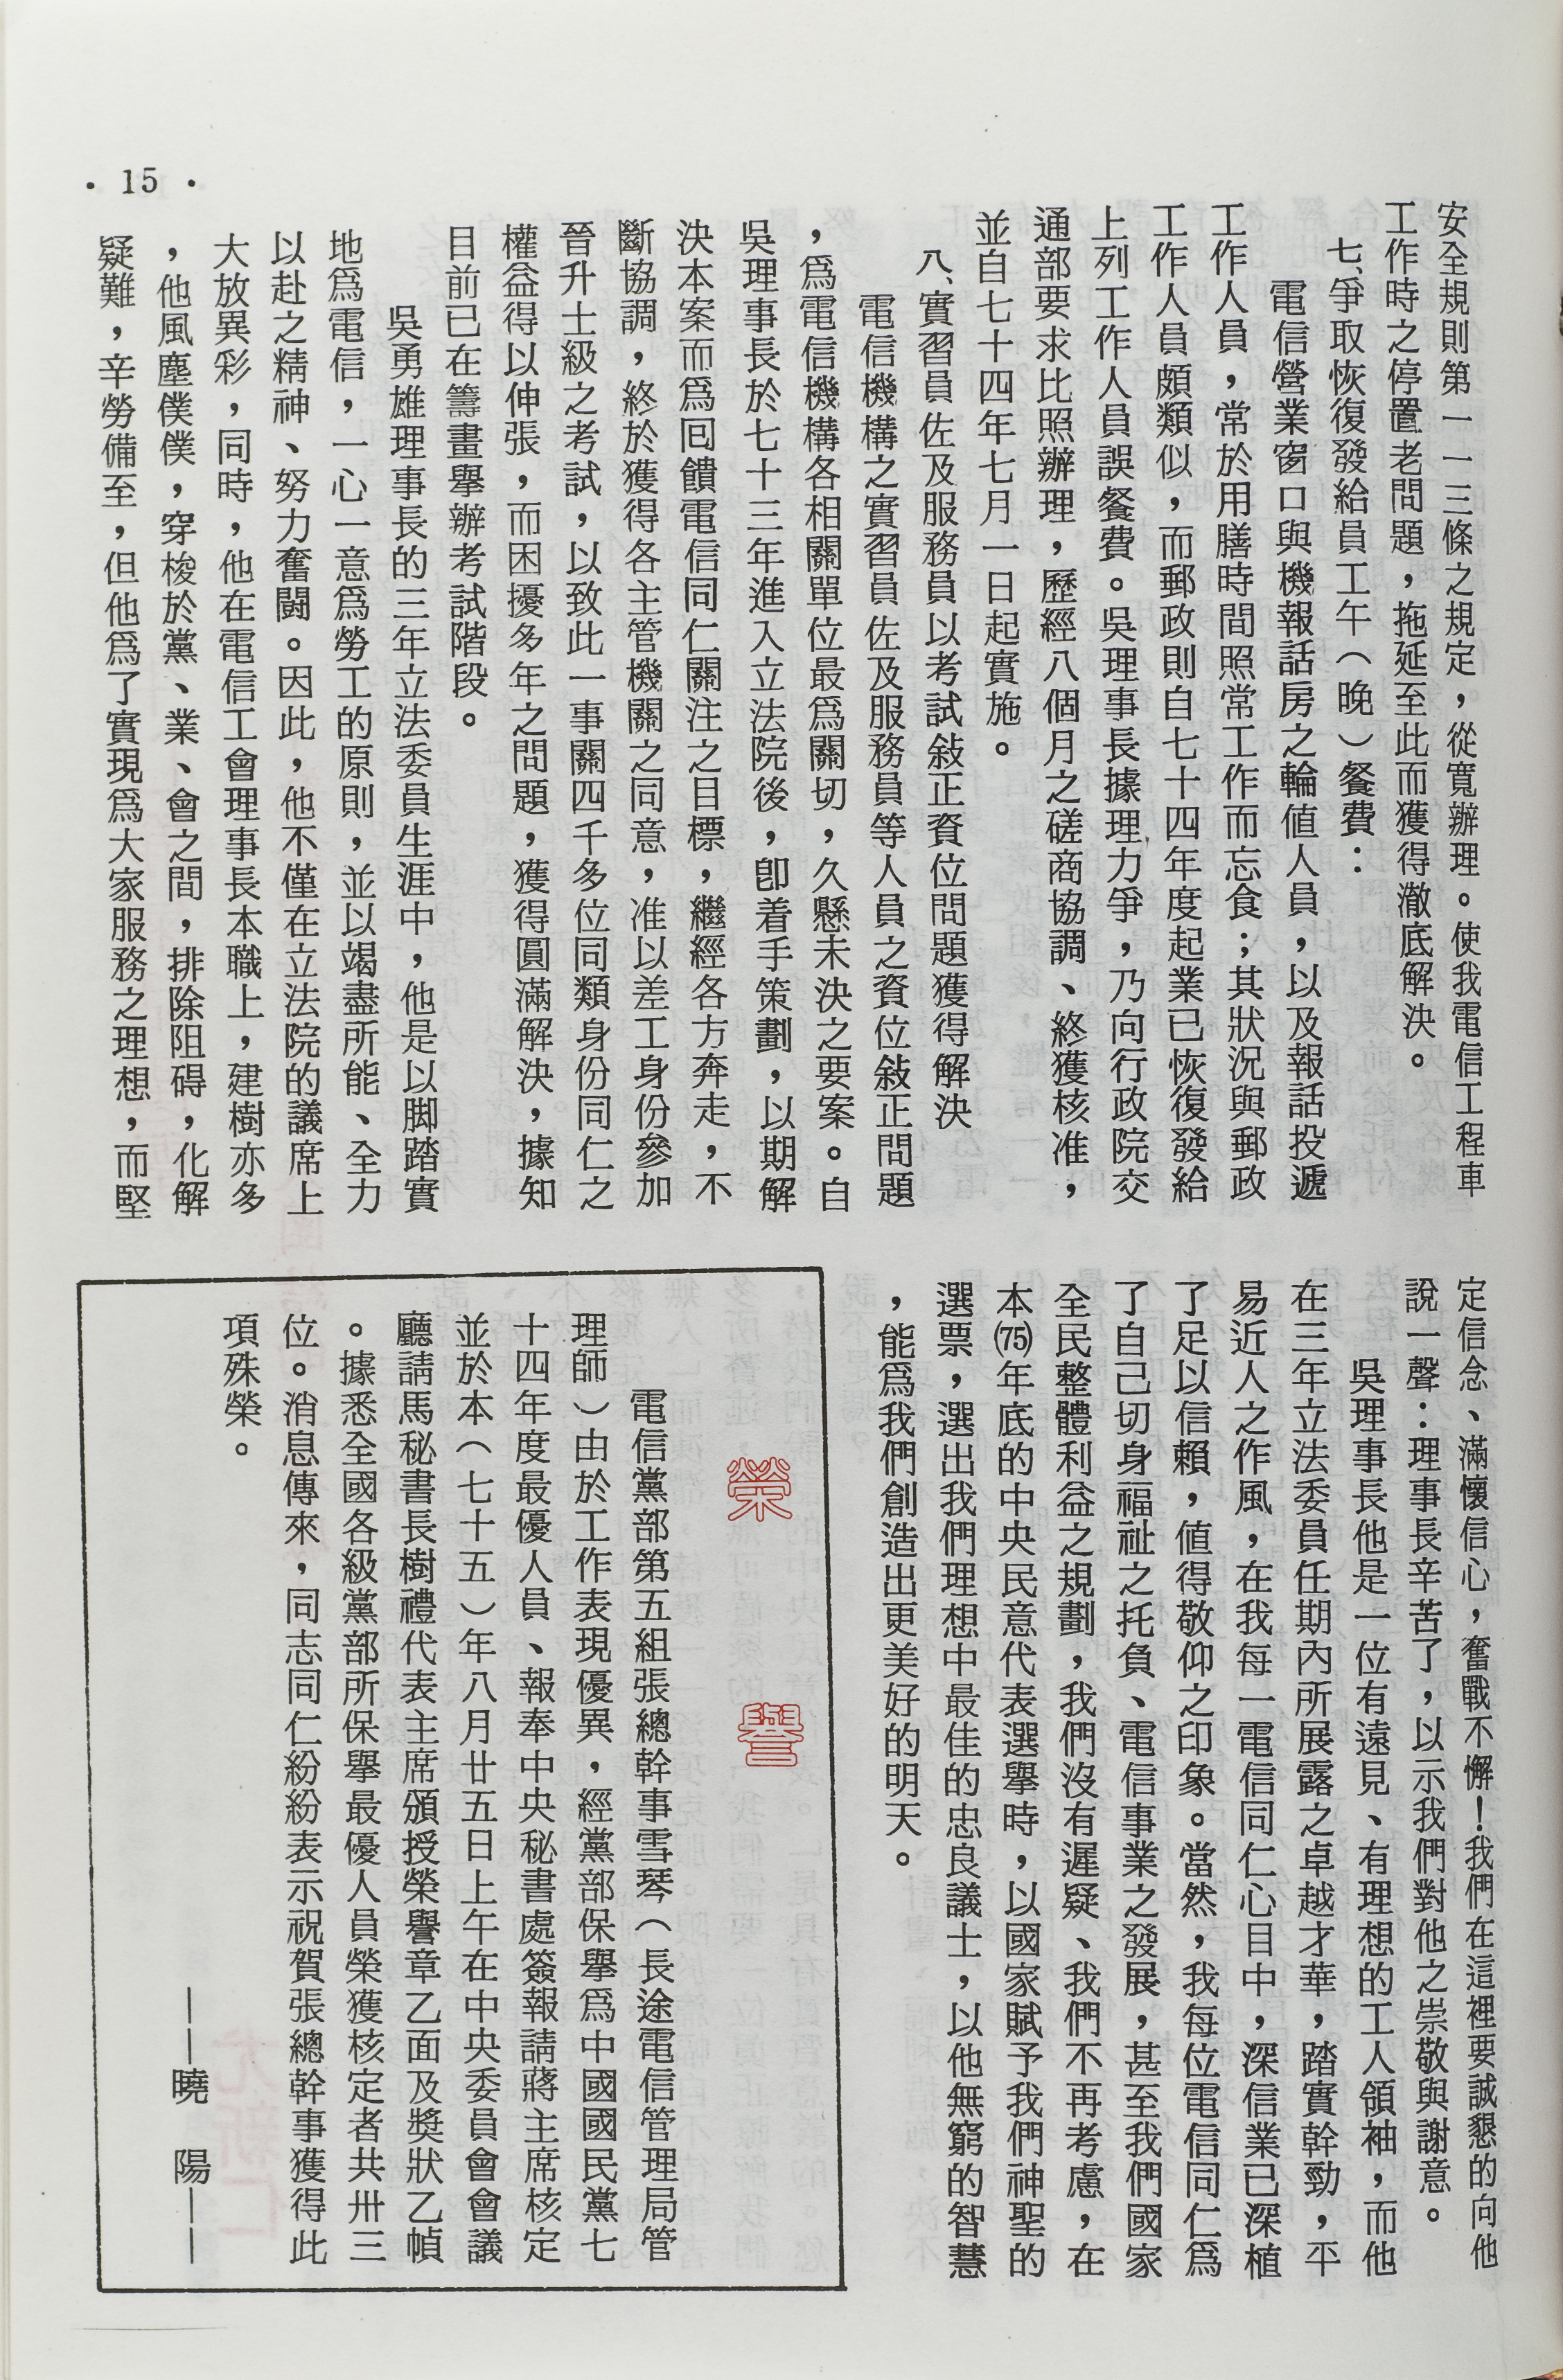 安全規則第一一三條之規定，從寬辦理。使我電信工程車
工作時之停置老問題，拖延至此而獲得澈底解決。
七、爭取恢復發給員工午（晚）餐費：
電信營業窗口與機報話房之輪値人員，以及報話投遞
工作人員，常於用膳時間照常工作而忘食；其狀況與郵政
工作人員頗類似，而郵政則自七十四年度起業已恢復發給
上列工作人員誤餐費。吳理事長據理力爭，乃向行政院交
通部要求比照辦理，歷經八個月之磋商協調、終獲核准，
並自七十四年七月一日起實施。
八、實習員佐及服務員以考試敍正資位問題獲得解決
電信機構之實習員佐及服務員等人員之資位敍正問題
，爲電信機構各相關單位最爲關切，久懸未決之要案。自
吳理事長於七十三年進入立法院後，卽着手策劃，以期解
決本案而爲囘饋電信同仁關注之目標，繼經各方奔走，不
斷協調，終於獲得各主管機關之同意，准以差工身份參加
晉升士級之考試，以致此一事關四千多位同類身份同仁之
權益得以伸張，而困擾多年之問題，獲得圓滿解決，據知
目前已在籌畫舉辦考試階段。
吳勇雄理事長的三年立法委員生涯中，他是以脚踏實
地爲電信，一心一意爲勞工的原則，並以竭盡所能、全力
以赴之精神、努力奮鬪。因此，他不僅在立法院的議席上
大放異彩，同時，他在電信工會理事長本職上，建樹亦多
，他風塵僕僕，穿梭於黨、業、會之間，排除阻碍，化解
疑難，辛勞備至，但他爲了實現爲大家服務之理想，而堅
• 15 •
定信念、滿懷信心，奮戰不懈！我們在這裡要誠懇的向他
說一聲：理事長辛苦了，以示我們對他之崇敬與謝意。
吳理事長他是一位有遠見、有理想的工人領袖，而他
在三年立法委員任期內所展露之卓越才華，踏實幹勁，平
易近人之作風，在我每一電信同仁心目中，深信業已深植
了足以信賴，值得敬仰之印象。當然，我每位電信同仁爲
了自己切身福祉之托負、電信事業之發展，甚至我們國家
全民整體利益之規劃，我們沒有遲疑、我們不再考慮，在
本(75)年底的中央民意代表選舉時，以國家賦予我們神聖的
選票，選出我們理想中最佳的忠良議士，以他無窮的智慧
，能爲我們創造出更美好的明天。
榮譽
電信黨部第五組張總幹事雪琴（長途電信管理局管
理師）由於工作表現優異，經黨部保舉爲中國國民黨七
十四年度最優人員、報奉中央秘書處簽報請蔣主席核定
並於本（七十五）年八月廿五日上午在中央委員會會議
廳請馬秘書長樹禮代表主席頒授榮譽章乙面及獎狀乙幀
。據悉全國各級黨部所保舉最優人員榮獲核定者共卅三
位。消息傳來，同志同仁紛紛表示祝賀張總幹事獲得此
項殊榮。
——曉　陽——